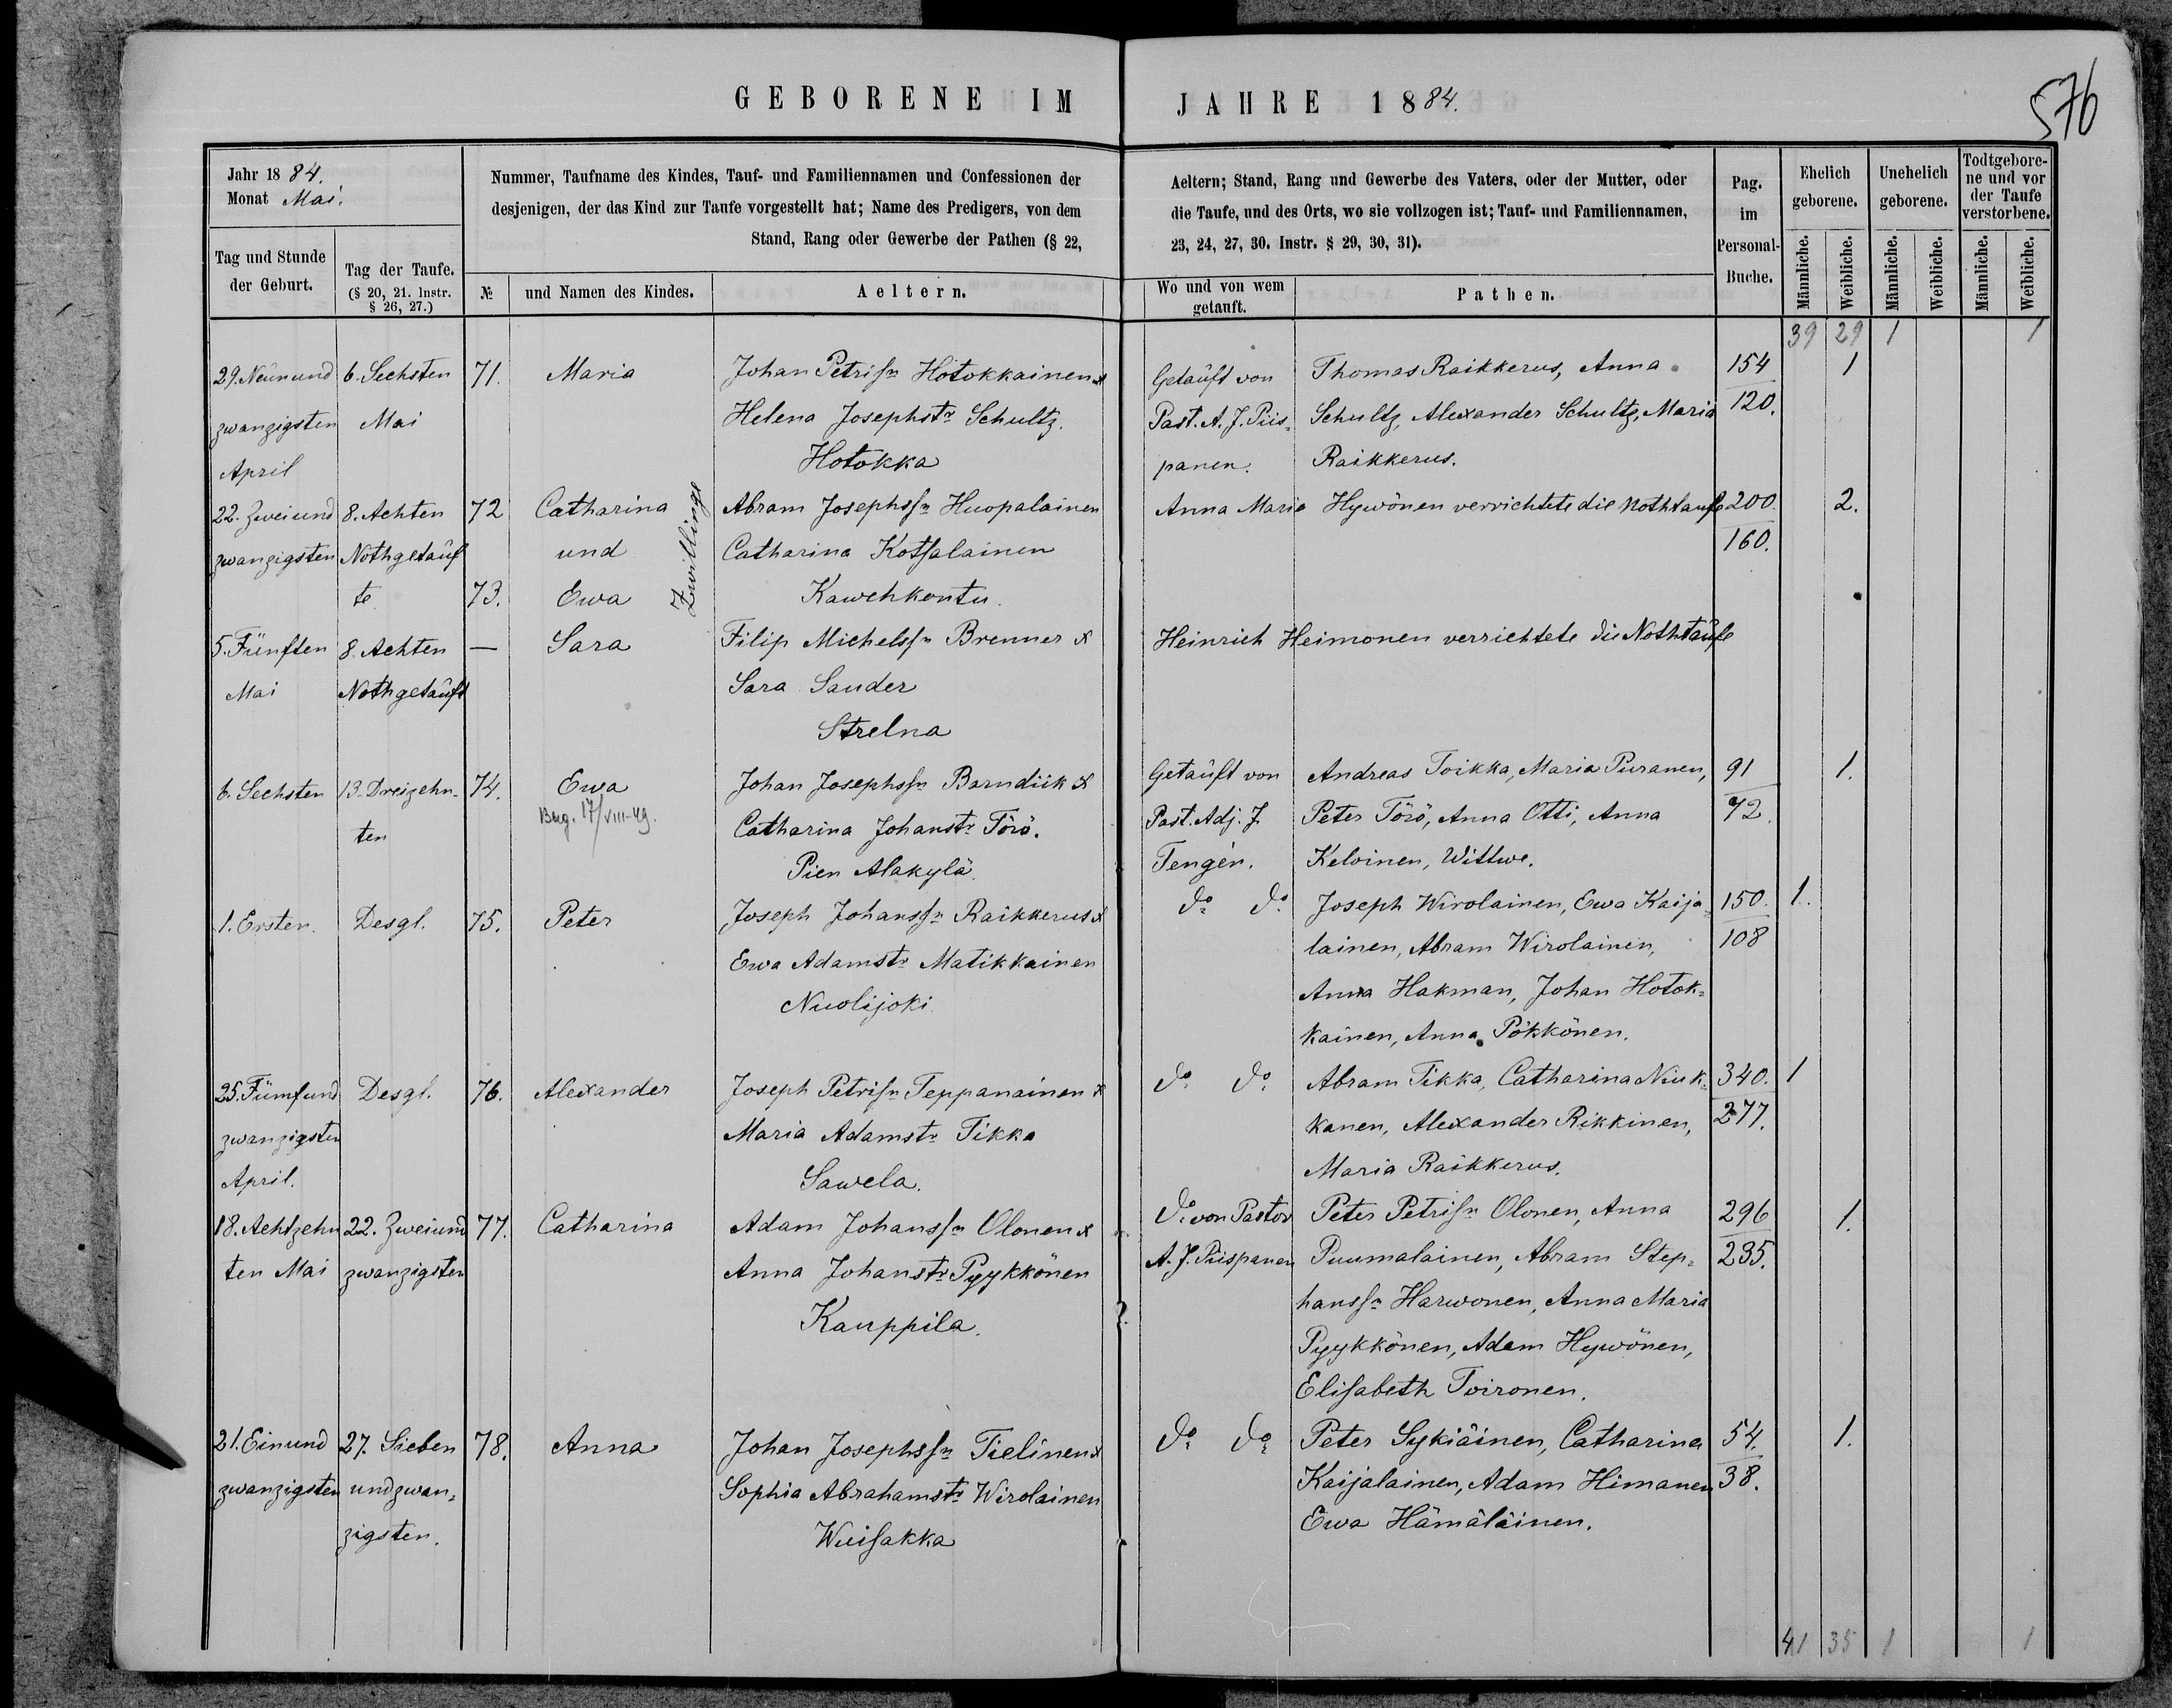 GEBORENE IM JAHRE 1884.
576
Jahr 1884.
Monat Mai.
Nummer, Taufname des Kindes, Tauf- und Familiennamen und Confessionen der
desjenigen, der das Kind zur Taufe vorgestellt hat; Name des Predigers, von dem
Stand, Rang oder Gewerbe der Pathen (§ 22,
Aeltern; Stand, Rang und Gewerbe des Vaters, oder der Mutter, oder
die Taufe, und des Orts, wo sie vollzogen ist; Tauf- und Familiennamen,
23, 24, 27, 30. Instr. § 29, 30, 31).
Pag.
im
Personal-
Buche.
Ehelich
geborene.
Unehelich
geborene.
Todtgebore-
ne und vor
der Taufe
verstorbene.
Tag und Stunde
der Geburt.
Tag der Taufe.
(§ 20, 21. Instr.
§ 26, 27.)
№
und Namen des Kindes.
Aeltern.
Wo und von wem
getauft.
Pathen.
Männliche.
Weibliche.
Männliche.
Weibliche.
Männliche.
Weibliche.
39 29 1 1
29. Neunund 6. Sechsten 71. Maria Johan Petrisſn Hotokkainen x Getauft von Thomas Raikkerus, Anna 154 1
zwanzigsten Mai Helena Josephstr Schultz. Past. A. J. Piis- Schultz, Alexander Schultz, Maria 120.
April Hotokka panen. Raikkerus.
22. Zweiund 8. Achten 72 Catharina Abram Josephsſn Huopalainen Anna Maria Hywönen verrichtete die Nothtaufe 200. 2.
zwanzigsten Nothgetauf und Zwillinge Catharina Kotſalainen 160.
te 73. Ewa Kawehkontu.
5. Fünften 8. Achten — Sara Filip Michelsſn Brenner x Heinrich Heimonen verrichtete die Nothtaufe
Mai Nothgetauft Sara Sander
Strelna
6. Sechsten 13. Dreizehn- 74. Ewa Johan Josephsſn Barndiik x Getauft von Andreas Toikka, Maria Puranen, 91 1.
ten Catharina Johanstr Törö. Past. Adj. J. Peter Törö, Anna Otti, Anna 72.
17/VIII-49.
Pien Alakylä. Tengén. Keloinen, Wittwe.
1. Ersten. Desgl. 75. Peter Joseph Johansſn Raikkerus x do do Joseph Wirolainen, Ewa Kaija- 150. 1.
Ewa Adamstr Matikkainen lainen, Abram Wirolainen, 108
Nuolijoki. Anna Hakman, Johan Hotok-
kainen, Anna Pökkönen.
25. Fümfund Desgl. 76. Alexander Joseph Petrisſn Teppanainen x do do Abram Tikka, Catharina Niuk- 340. 1
zwanzigsten Maria Adamstr Tikka kanen, Alexander Rikkinen, 277.
April. Sawela. Maria Raikkerus.
18. Achtzehn 22. Zweiund 77. Catharina Adam Johansſn Olonen x do von Pastor Peter Petrisſn Olonen, Anna 296 1.
ten Mai zwanzigsten Anna Johanstr Pyykkönen A. J. Piispanen Puumalainen, Abram Step- 235.
Kauppila. hansſn Harwonen, Anna Maria
Pyykkönen, Adam Hywönen,
Elisabeth Toironen.
21. Einund 27. Sieben 78. Anna Johan Josephsſn Tielinen x do do Peter Sykiäinen, Catharina 54. 1.
zwanzigsten undzwan- Sophia Abrahamstr Wirolainen Kaijalainen, Adam Himanen 38.
zigsten. Wuisakka Ewa Hämäläinen.
41 35 1 1